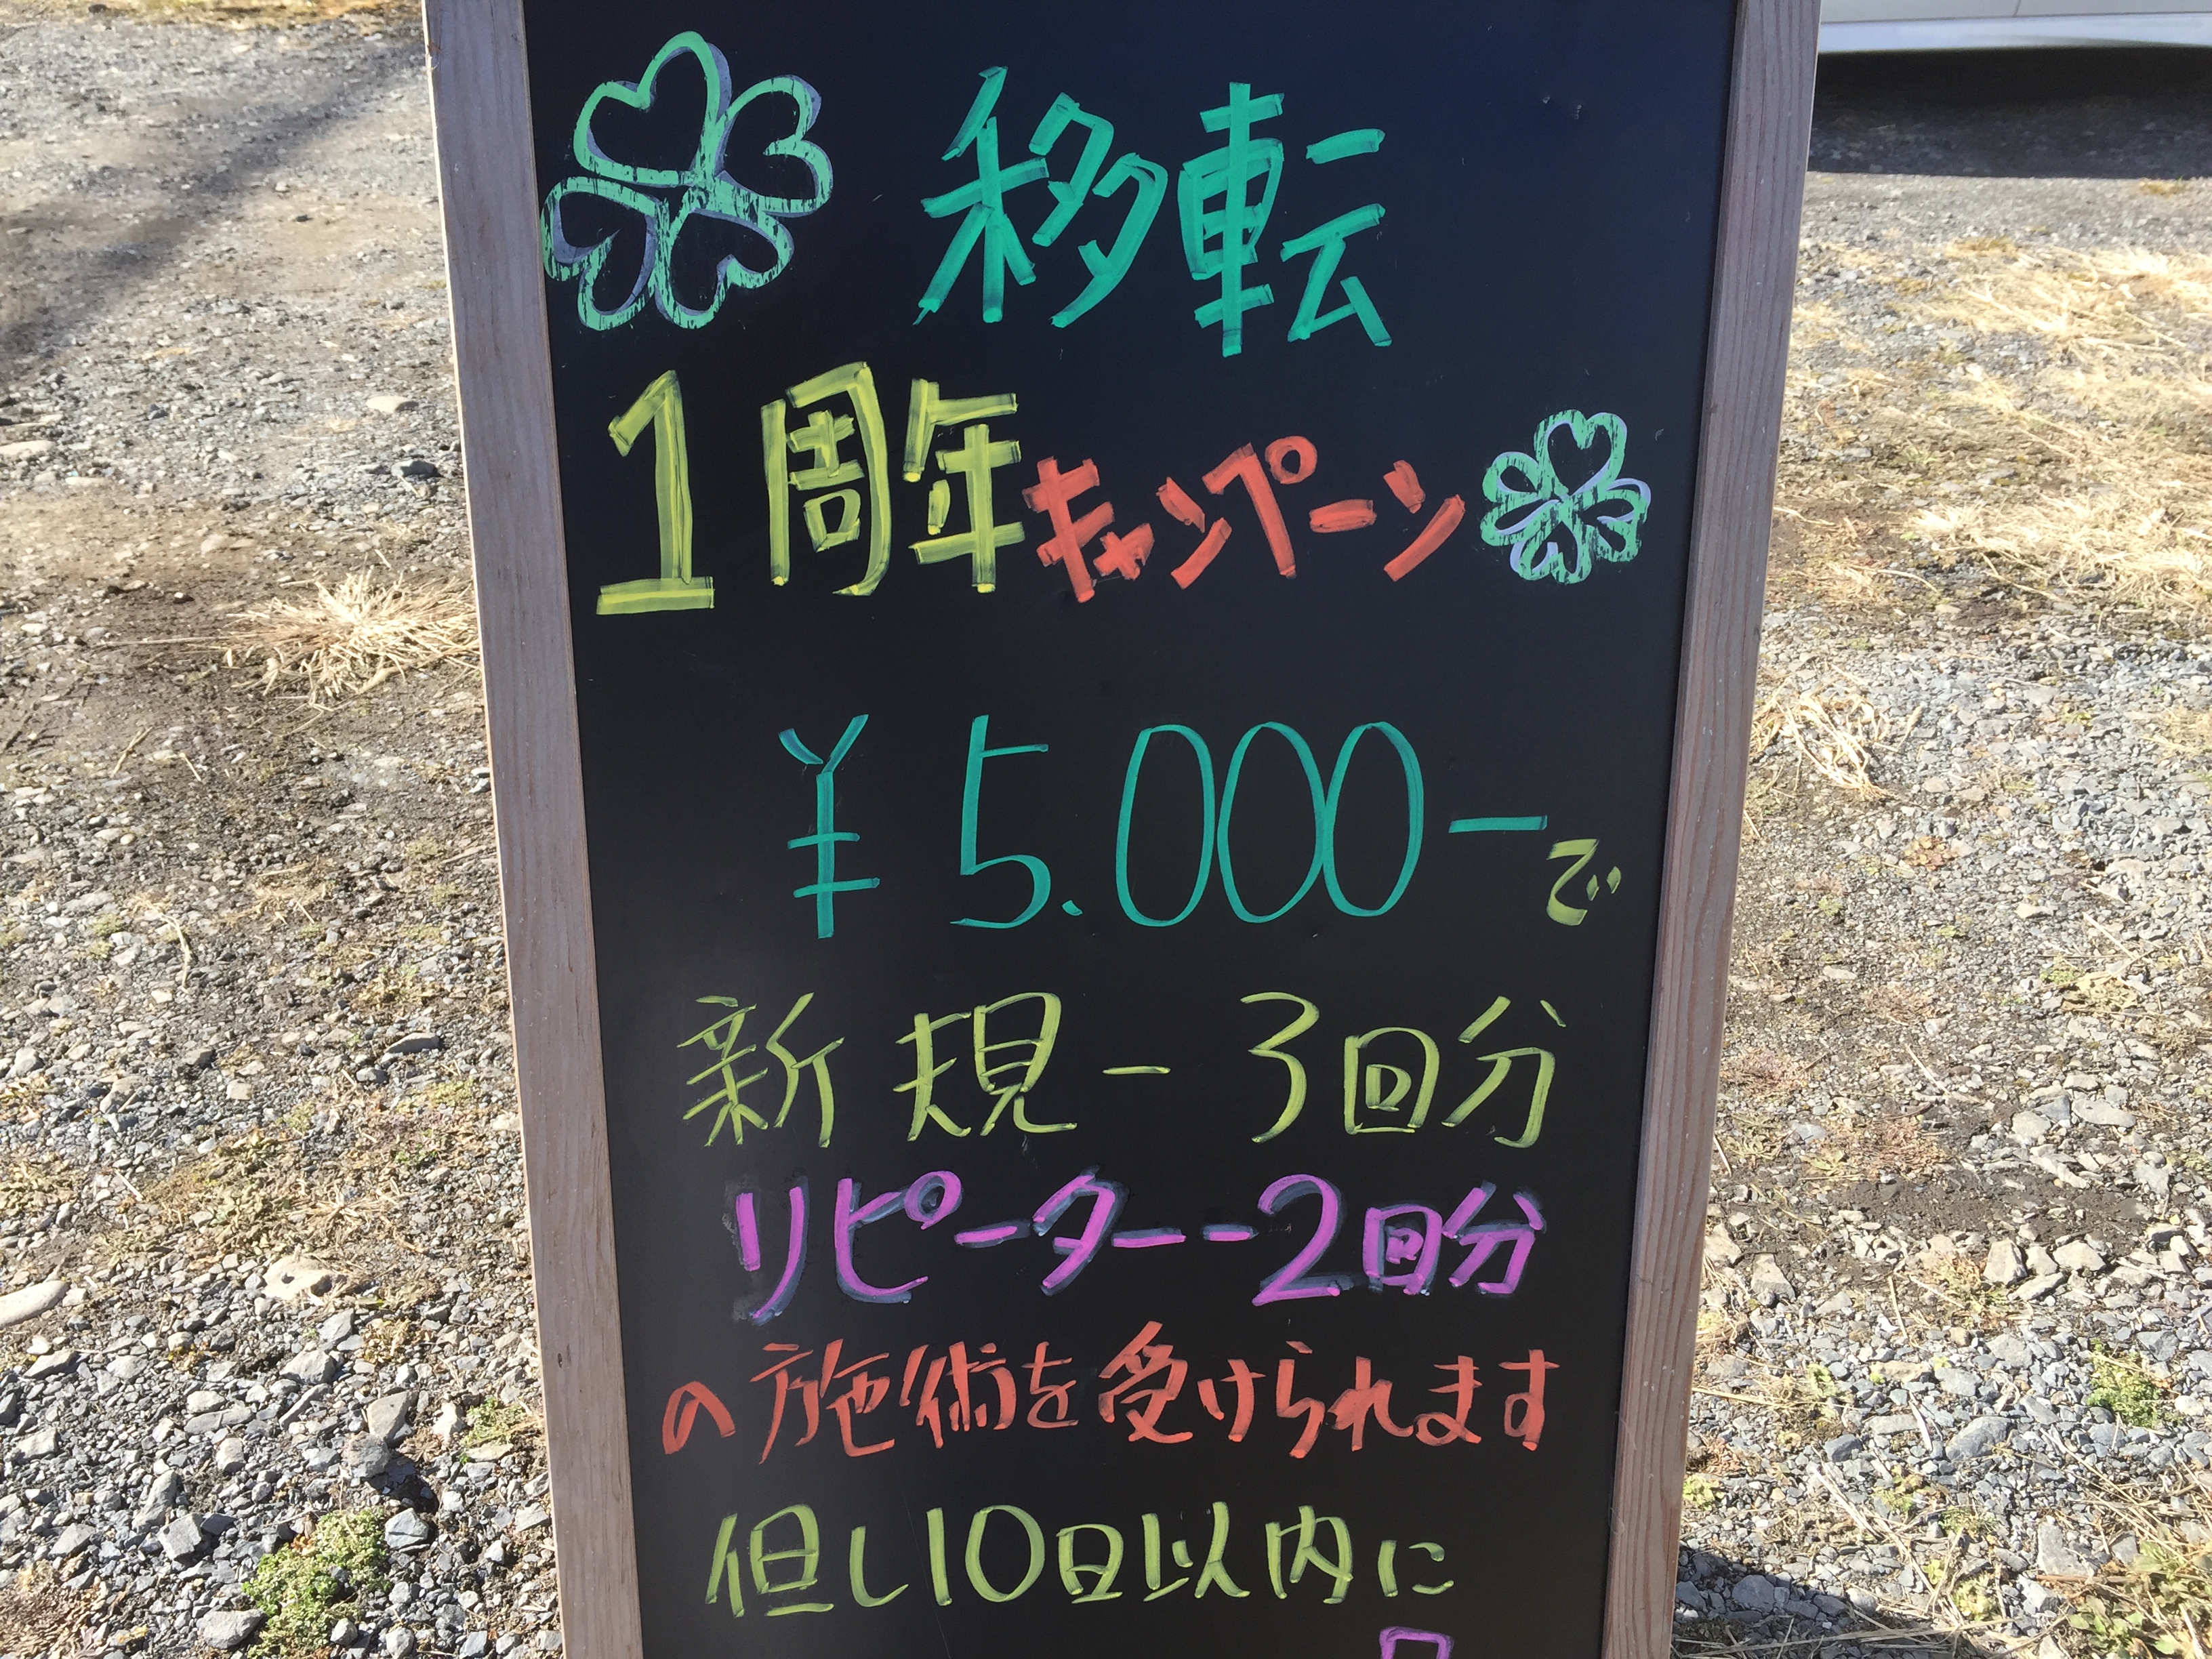 移転
1周年キャンペーン
￥5.000ーで
新規－3回分
リピーター－2回分
の施術を受けられます
但し10日以内に